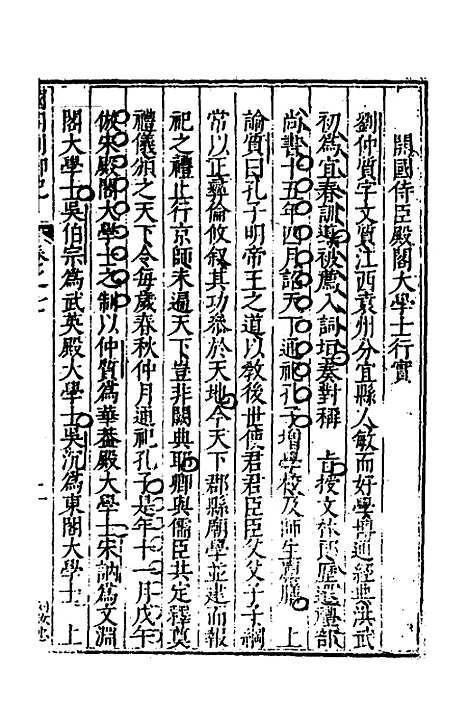 開國侍臣殿閣大學士行實
劉仲質字文質江西袁州分宜縣人敏而好學博通經典洪武
初為宜春訓導被薦入詞垣奏對稱 旨授文林郎歷遷禮部
尚書十五年四月詔天下通祀孔子增學校及師生廩膳 上
諭質曰孔子明帝王之道以教後世使君君臣臣父父子子綱
常以正彝倫攸叙其功叅於天地今天下郡縣廟學並建而報
祀之禮止行京師未遍天下豈非闕典耶卿與儒臣共定釋奠
禮儀頒之天下令每歲春秋仲月通祀孔子是年十一月戊午
倣宋殿閣大學士之制以仲質為華葢殿大學士宋訥為文淵
閣大學士吳伯宗為武英殿大學士吳沉為東閣大學士 上
卷之七